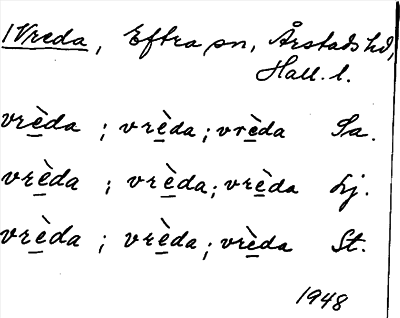 1 Vreda, Eftra sn, Årstads hd,
Hall. l.
vrèda ; vrèda ; vrèda Sa.
vrèda ; vrèda ; vrèda Lj.
vrèda ; vrèda ; vrèda St.
1948